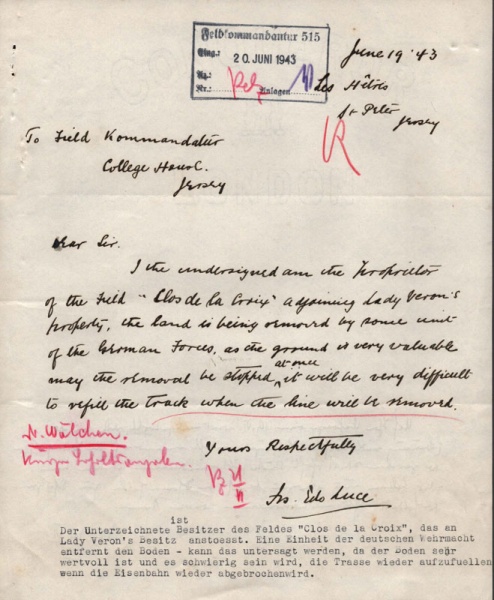 Feldkommandantur 515
Eing.: 20. JUNI 1943
Az.:
Nr.: Anlagen
June 19 '43
Les Hêtres
St Peter
Jersey
To Field Kommandatur
College House.
Jersey
Dear Sir.
I the undersigned am the Proprietor
of the Field "Clos de la Croix" adjoining Lady Veron's
property, the land is being removed by some unit
of the German Forces, as the ground is very valuable
may the removal be stopped at once, it will be very difficult
to refill the track when the line will be removed.
Yours Respectfully
Dr. Wätchen.
ist
Der Unterzeichnete Besitzer des Feldes "Clos de la Croix", das an
Lady Veron's Besitz anstoesst. Eine Einheit der deutschen Wehrmacht
entfernt den Boden - kann das untersagt werden, da der Boden sehr
wertvoll ist und es schwierig sein wird, die Trasse wieder aufzufuellen
wenn die Eisenbahn wieder abgebrochenwird.